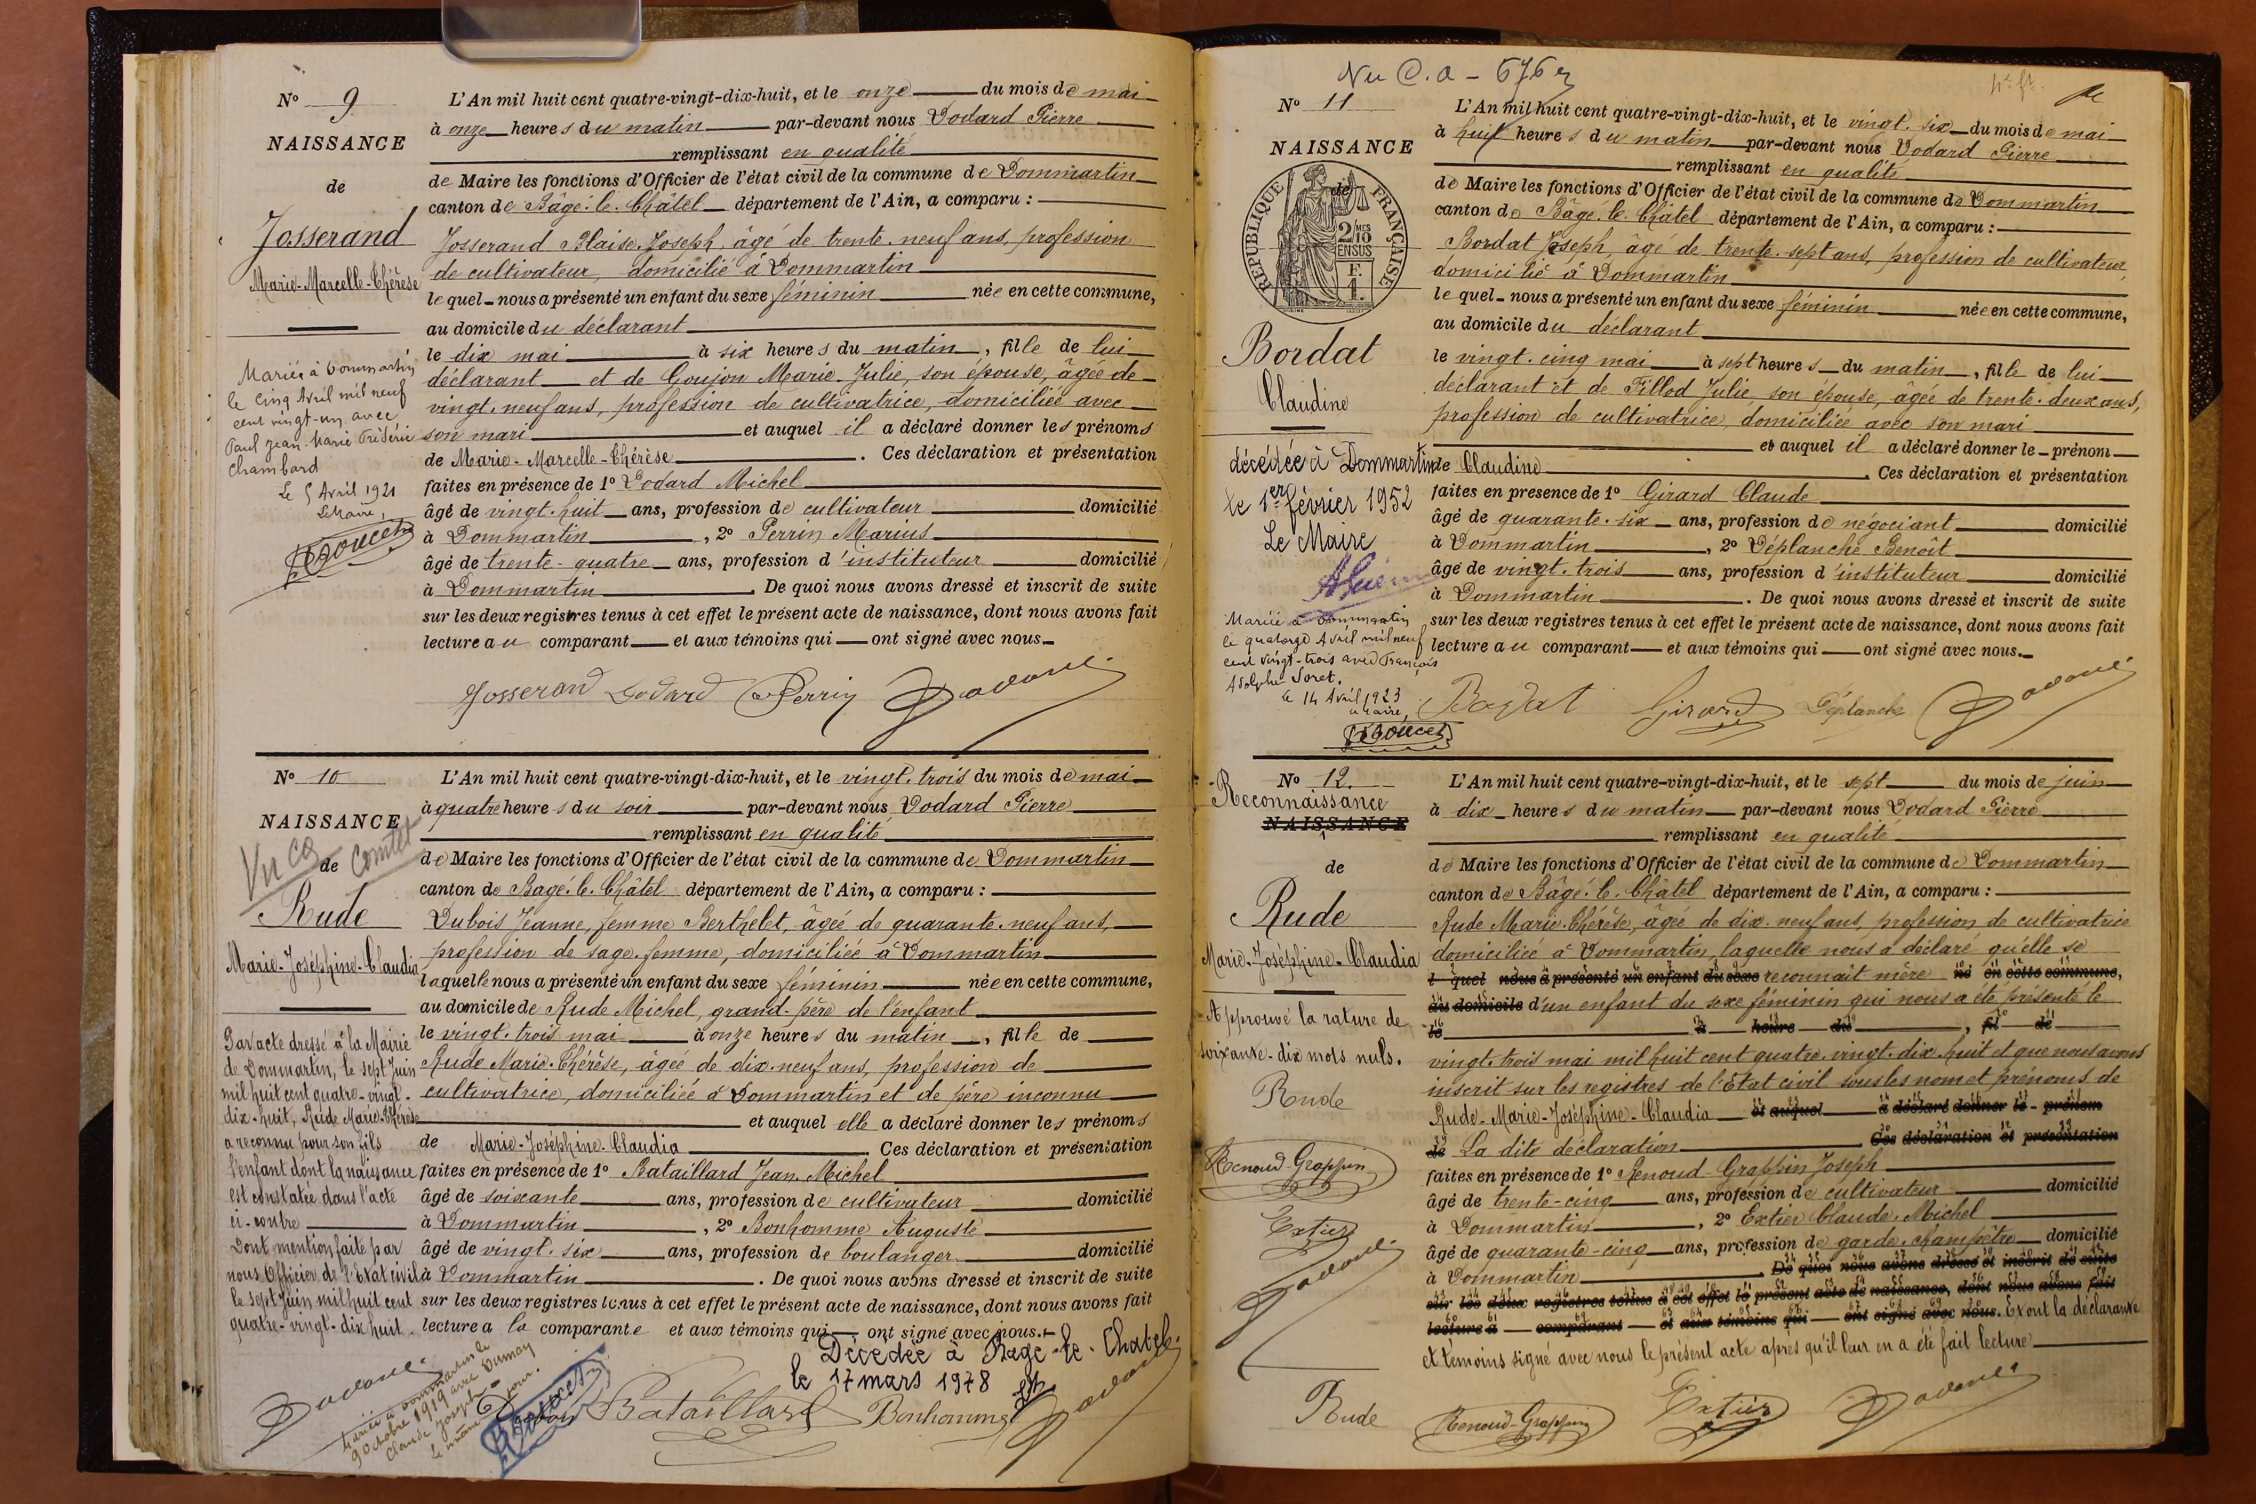 N° 9
NAISSANCE
de
Josserand
Marie-Marcelle-Thérèse
Mariée à Dommartin
le cinq Avril mil neuf
cent vingt-un avec
Paul Jean Marie Frédéric
Chambard
Le 5 Avril 1921
Le Maire,
L'An mil huit cent quatre-vingt-dix-huit, et le onze du mois de mai
à onze heures du matin par-devant nous Dodard Pierre
remplissant en qualité
de Maire les fonctions d'Officier de l'état civil de la commune de Dommartin
canton de Bâgé-le-Châtel département de l'Ain, a comparu :
Josserand Blaise Joseph, âgé de trente-neuf ans, profession
de cultivateur, domicilié à Dommartin
lequel nous a présenté un enfant du sexe féminin née en cette commune,
au domicile du déclarant
le dix mai à six heures du matin, fille de lui
déclarant et de Goujon Marie-Julie, son épouse, âgée de
vingt-neuf ans, profession de cultivatrice, domiciliée avec
son mari et auquel il a déclaré donner les prénoms
de Marie-Marcelle-Thérèse. Ces déclaration et présentation
faites en présence de 1° Dodard Michel
âgé de vingt-huit ans, profession de cultivateur domicilié
à Dommartin, 2° Perrin Marius
âgé de trente-quatre ans, profession d'instituteur domicilié
à Dommartin. De quoi nous avons dressé et inscrit de suite
sur les deux registres tenus à cet effet le présent acte de naissance, dont nous avons fait
lecture au comparant et aux témoins qui ont signé avec nous.
Josserand Dodard Perrin Dodard
N° 10
NAISSANCE
de
Vu ca
Rude
Marie-Joséphine-Claudia
Par acte dressé à la Mairie
de Dommartin, le sept Juin
mil huit cent quatre-vingt-
dix-huit, Rude Marie-Thérèse
a reconnu pour son fils
l'enfant dont la naissance
est constatée dans l'acte
ci-contre
Dont mention faite par
nous Officier de l'Etat civil
le sept Juin mil huit cent
quatre-vingt-dix huit.
Dodard
Mariée à Dommartin le
9 Octobre 1919 avec Dumay
Claude Joseph
L'An mil huit cent quatre-vingt-dix-huit, et le vingt-trois du mois de mai
à quatre heures du soir par-devant nous Dodard Pierre
remplissant en qualité
de Maire les fonctions d'Officier de l'état civil de la commune de Dommartin
canton de Bagé-le-Châtel département de l'Ain, a comparu :
Dubois Jeanne, femme Berthelet, âgée de quarante-neuf ans,
profession de sage-femme, domiciliée à Dommartin
laquelle nous a présenté un enfant du sexe féminin née en cette commune,
au domicile de Rude Michel, grand-père de l'enfant
le vingt-trois mai à onze heures du matin, fille de
Rude Marie-Thérèse, âgée de dix-neuf ans, profession de
cultivatrice, domiciliée à Dommartin et de père inconnu
et auquel elle a déclaré donner les prénoms
de Marie-Joséphine-Claudia Ces déclaration et présentation
faites en présence de 1° Bataillard Jean Michel
âgé de soixante ans, profession de cultivateur domicilié
à Dommartin, 2° Bonhomme Auguste
âgé de vingt-six ans, profession de boulanger domicilié
à Dommartin. De quoi nous avons dressé et inscrit de suite
sur les deux registres tenus à cet effet le présent acte de naissance, dont nous avons fait
lecture a la comparante et aux témoins qui ont signé avec nous.
Décédée à Bagé-le-Chatel
le 17 mars 1978
Bataillard Bonhomme Dodard
Vu C.a - 676
N° 11
NAISSANCE
de
REPUBLIQUE FRANÇAISE
2/10 MES
EN SUS
F.
1.
Bordat
Claudine
décédée à Dommartin
le 1er février 1952
Le Maire
Mariée à Dommartin
le quatorze Avril mil neuf
cent vingt-trois avec François
Adolphe Soret.
le 14 Avril 1923
Le Maire,
L'An mil huit cent quatre-vingt-dix-huit, et le vingt-six du mois de mai
à huit heures du matin par-devant nous Dodard Pierre
remplissant en qualité
de Maire les fonctions d'Officier de l'état civil de la commune de Dommartin
canton de Bâgé-le-Châtel département de l'Ain, a comparu :
Bordat Joseph, âgé de trente-sept ans, profession de cultivateur,
domicilié à Dommartin
lequel nous a présenté un enfant du sexe féminin née en cette commune,
au domicile du déclarant
le vingt-cinq mai à sept heures du matin, fille de lui
déclarant et de Fillod Julie, son épouse, âgée de trente-deux ans,
profession de cultivatrice, domiciliée avec son mari
et auquel il a déclaré donner le prénom
de Claudine. Ces déclaration et présentation
faites en présence de 1° Girard Claude
âgé de quarante-six ans, profession de négociant domicilié
à Dommartin, 2° Déplanche Benoît
âgé de vingt-trois ans, profession d'instituteur domicilié
à Dommartin. De quoi nous avons dressé et inscrit de suite
sur les deux registres tenus à cet effet le présent acte de naissance, dont nous avons fait
lecture au comparant et aux témoins qui ont signé avec nous.
Bordat Girard Déplanche Dodard
N° 12
Reconnaissance
NAISSANCE
de
Rude
Marie-Joséphine-Claudia
Approuvé la rature de
soixante-dix mots nuls.
Rude
Renoud-Grappin
Extier
Dodard
L'An mil huit cent quatre-vingt-dix-huit, et le sept du mois de juin
à dix heures du matin par-devant nous Dodard Pierre
remplissant en qualité
de Maire les fonctions d'Officier de l'état civil de la commune de Dommartin
canton de Bâgé-le-Châtel département de l'Ain, a comparu :
Rude Marie-Thérèse, âgée de dix-neuf ans, profession de cultivatrice
domiciliée à Dommartin, laquelle nous a déclaré qu'elle se
l quel nous a présenté un enfant du sexe reconnait mère né en cette commune,
au domicile d'un enfant du sexe féminin qui nous a été présenté le
le à heure du , fil de
vingt-trois mai mil huit cent quatre-vingt-dix-huit et que nous avons
inscrit sur les registres de l'Etat civil sous les nom et prénoms de
Rude-Marie-Joséphine-Claudia et auquel a déclaré donner le prénom
de La dite déclaration Ces déclaration et présentation
faites en présence de 1° Renoud-Grappin Joseph
âgé de trente-cinq ans, profession de cultivateur domicilié
à Dommartin, 2° Extier Claude-Michel
âgé de quarante-cinq ans, profession de garde-champêtre domicilié
à Dommartin. De quoi nous avons dressé et inscrit de suite
sur les deux registres tenus à cet effet le présent acte de naissance, dont nous avons fait
lecture à comparant et aux témoins qui ont signé avec nous. Et ont la déclarante
et témoins signé avec nous le présent acte après qu'il leur en a été fait lecture
Rude Renoud-Grappin Extier Dodard